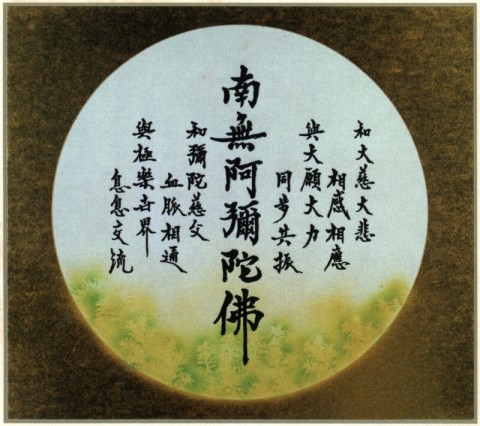 和大慈大悲
相感相應
與大願大力
同步共振
南無阿彌陀佛
和彌陀慈父
血脈相通
與極樂世界
息息交流